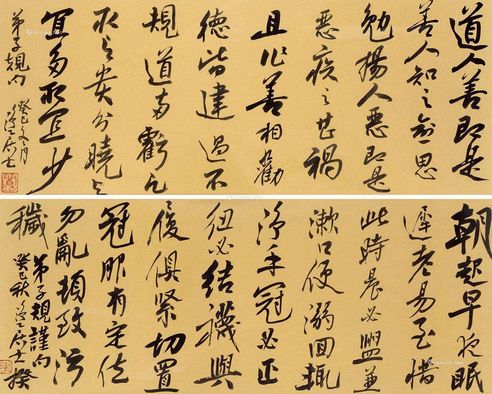 道人善即是
善人知之愈思
勉揚人惡即是
惡疾之甚禍
且作善相勸
德皆建過不
規道兩虧凡
取与貴分曉与
宜多取宜少
弟子規句
癸巳冬月居士
朝起早夜眠
遲老易至惜
此時晨必盥兼
漱口便溺回輒
淨手冠必正
紐必結襪與
履俱緊切置
冠服有定位
勿亂頓致污
穢
弟子規謹句
癸巳秋居士